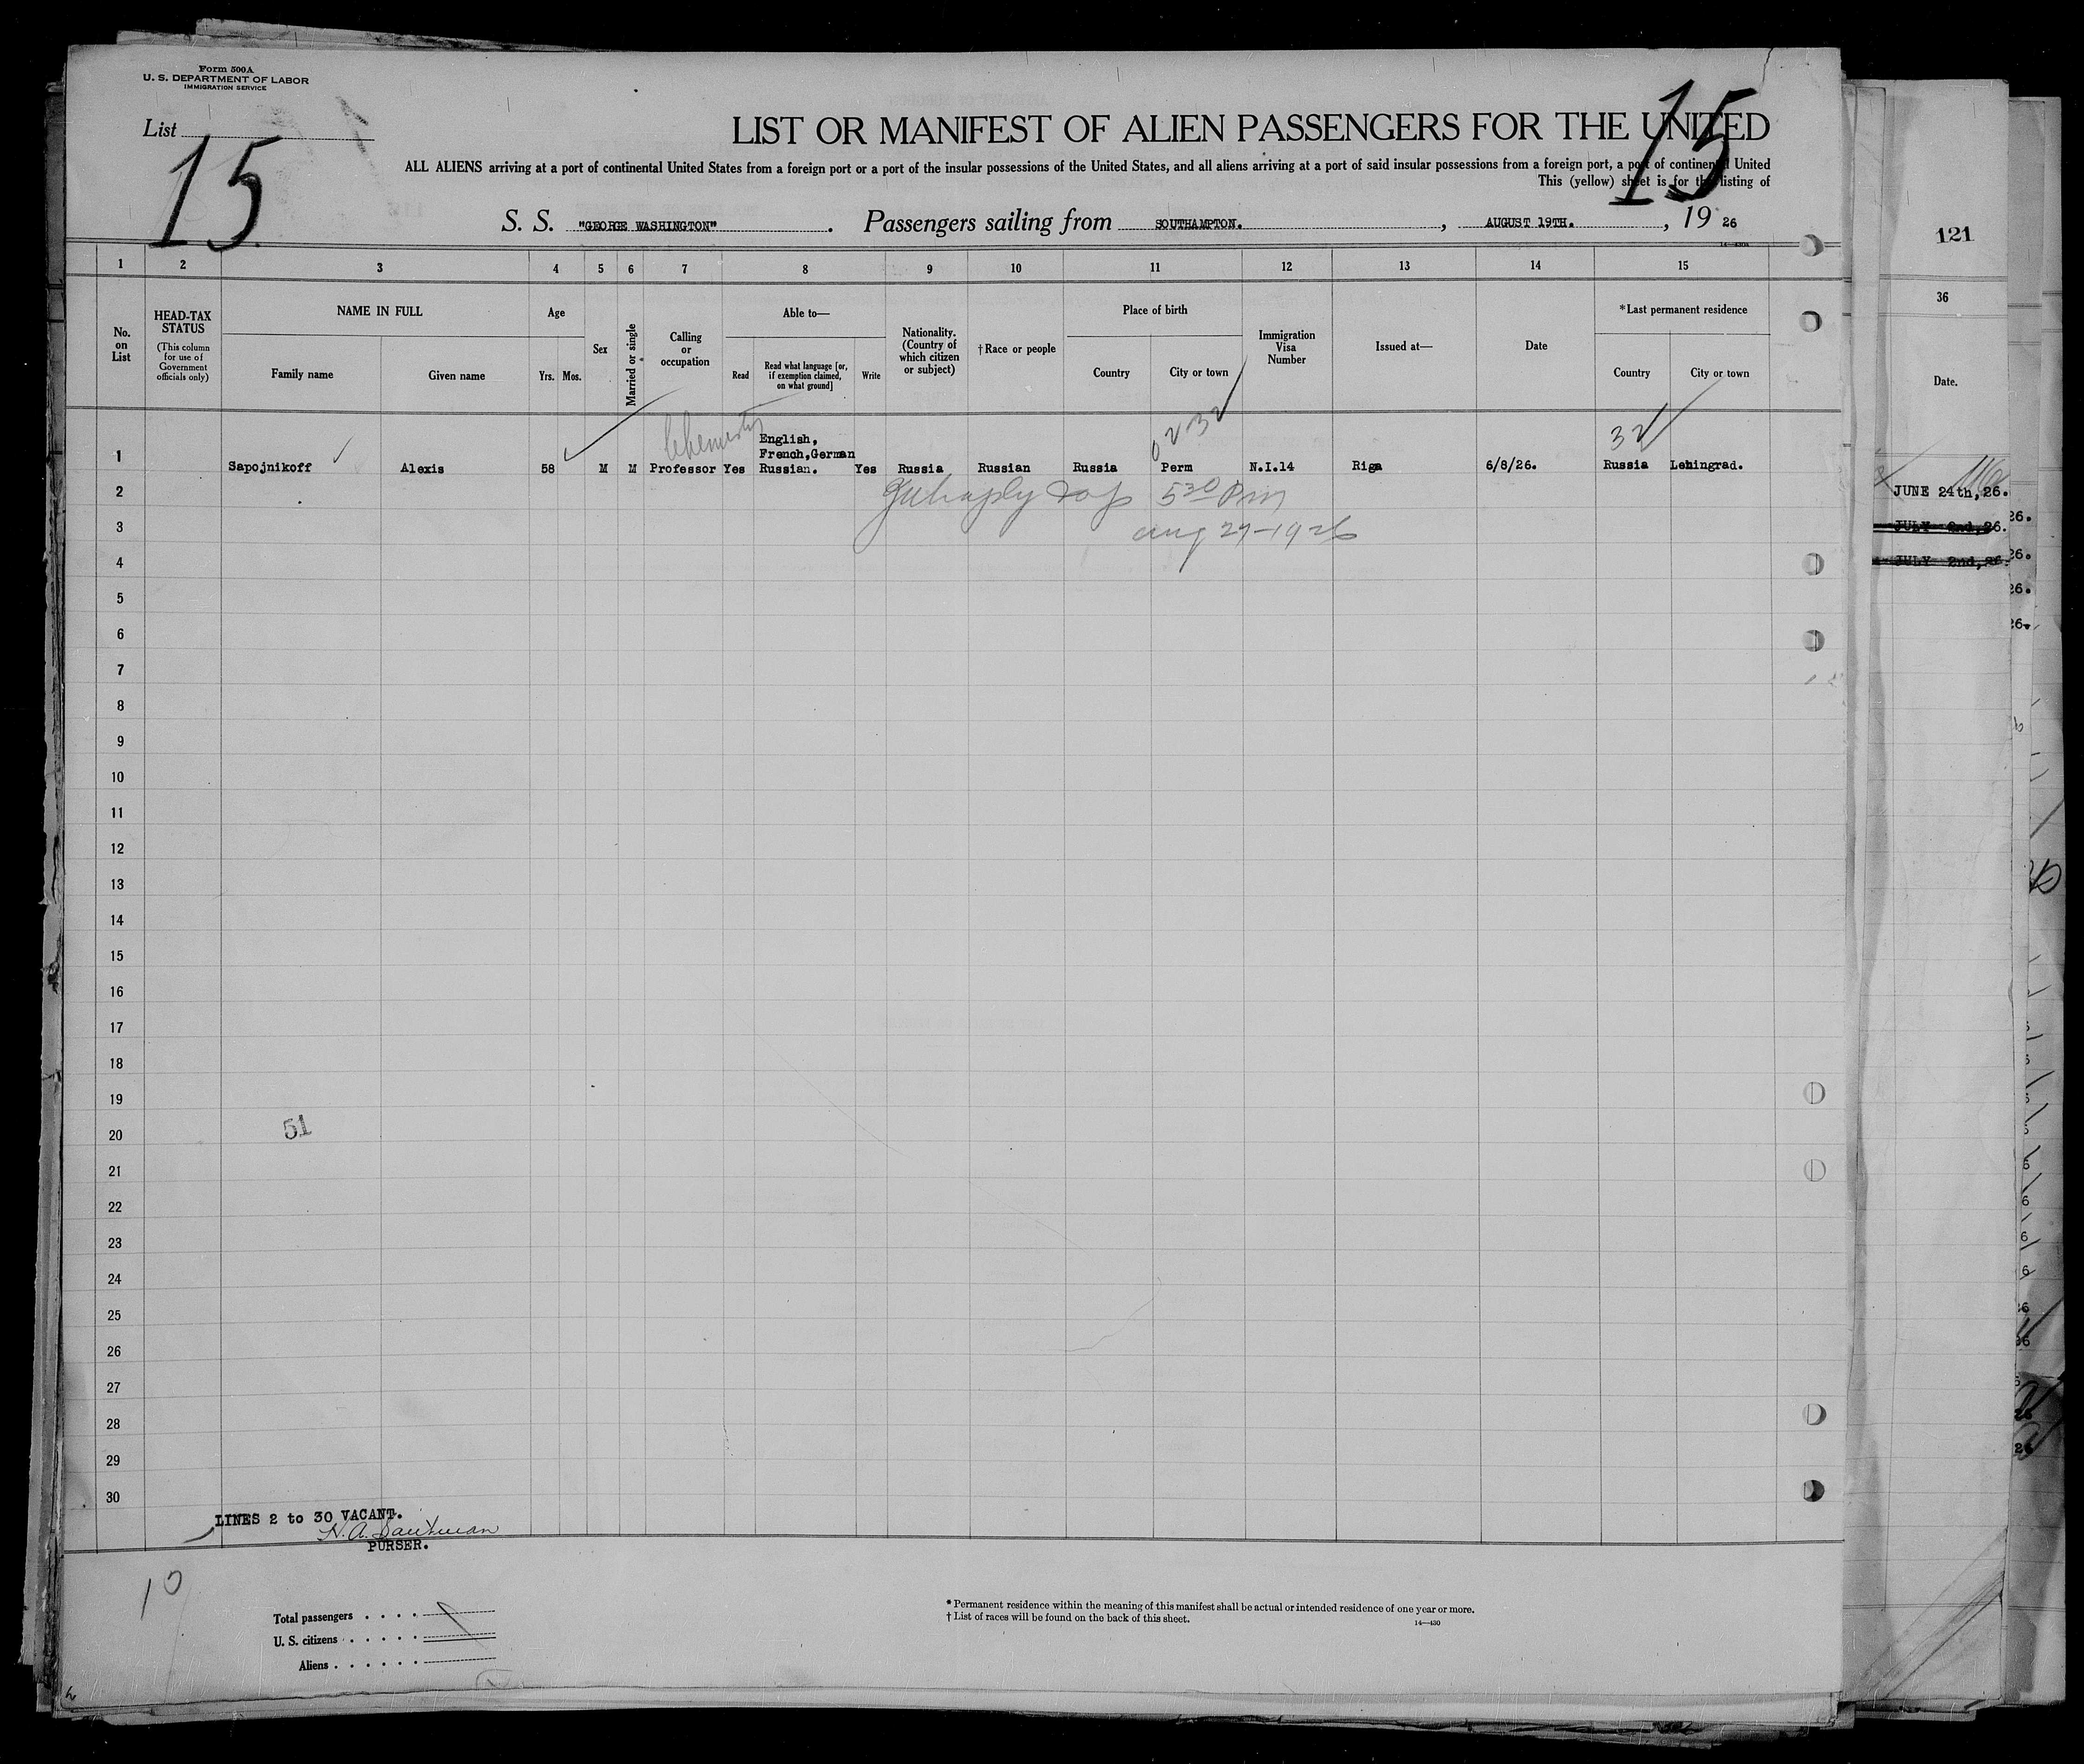 Form 500A
U. S. DEPARTMENT OF LABOR
IMMIGRATION SERVICE
List
15
15
LIST OR MANIFEST OF ALIEN PASSENGERS FOR THE UNITED
ALL ALIENS arriving at a port of continental United States from a foreign port or a port of the insular possessions of the United States, and all aliens arriving at a port of said insular possessions from a foreign port, a port of continental United
This (yellow) sheet is for the listing of
S. S. "GEORGE WASHINGTON" . Passengers sailing from SOUTHAMPTON. , AUGUST 19TH. , 19 26
121
1 2 3 4 5 6 7 8 9 10 11 12 13 14 15
36
No. on List
HEAD-TAX STATUS
(This column for use of Government officials only)
NAME IN FULL
Family name
Given name
Age
Yrs. Mos.
Sex
Married or single
Calling or occupation
Able to—
Read
Read what language [or, if exemption claimed, on what ground]
Write
Nationality. (Country of which citizen or subject)
†Race or people
Place of birth
Country
City or town
Immigration Visa Number
Issued at—
Date
*Last permanent residence
Country
City or town
Date.
Chemistry
32
1 Sapojnikoff Alexis 58 M M Professor Yes English, French,German Russian. Yes Russia Russian Russia Perm N.I.14 Riga 6/8/26. Russia Leningrad.
2
5 30 Pm
JUNE 24th,26.
3
aug 27-1926
JULY 2nd,26.
4
JULY 2nd,26.
5
6
7
8
9
10
11
12
13
14
15
16
17
18
19
20
51
21
22
23
24
25
26
27
28
29
30
LINES 2 to 30 VACANT.
PURSER.
10
Total passengers . . . .
U. S. citizens . . . . .
Aliens . . . . . .
* Permanent residence within the meaning of this manifest shall be actual or intended residence of one year or more.
† List of races will be found on the back of this sheet.
14—430